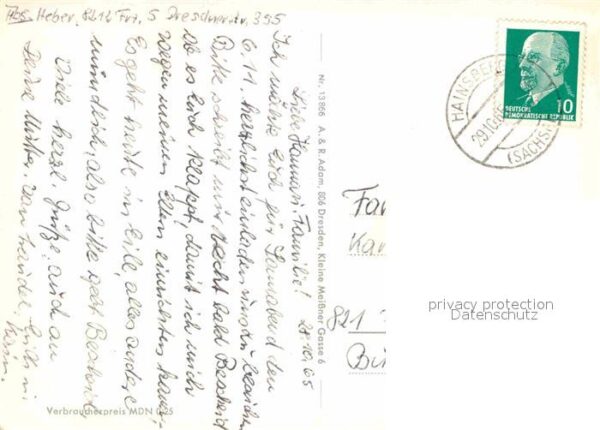 Abs. Heber, 8212 Frt. 5 Dresdnerstr. 355
28.10.65
Liebe Familie!
Ich möchte Euch für Sonnabend den
6.11. herzlichst einladen
Bitte schreibt mir recht bald Bescheid
ob es Euch klappt, damit ich mich
wegen meinen Eltern einrichten kann.
Es geht heute in Eile, alles andere
mündlich, also bitte gebt Bescheid
Viele herzl. Grüße, auch an
Deine Mutter, von
Nr. 13866 A. & R. Adam, 806 Dresden, Kleine Meißner Gasse 6
Verbraucherpreis MDN 0,25
HAINSBERG
29.10.65
(SACHS
DEUTSCHE
DEMOKRATISCHE REPUBLIK
10
Fam
821
privacy protection
Datenschutz